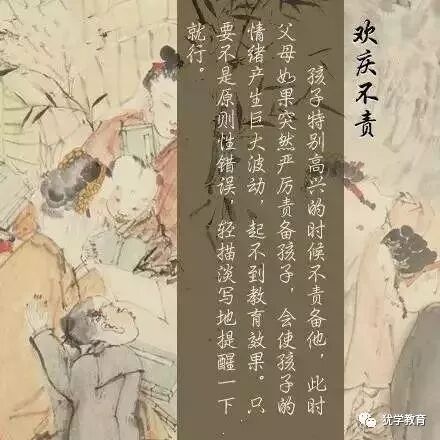 欢庆不责
孩子特别高兴的时候不责备他，此时
父母如果突然严厉责备孩子，会使孩子的
情绪产生巨大波动，起不到教育效果。只
要不是原则性错误，轻描淡写地提醒一下
就行。
犹学教育